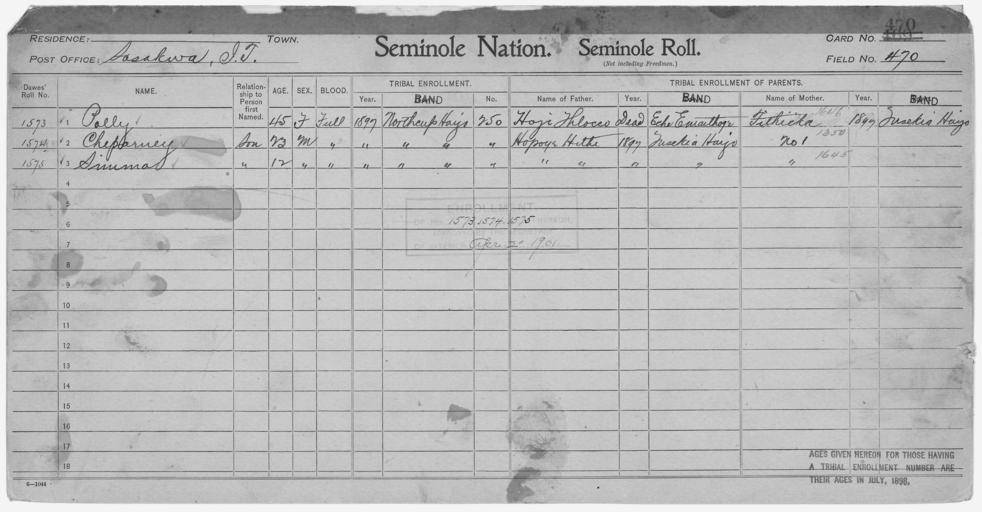 470
RESIDENCE: TOWN. Seminole Nation. Seminole Roll. CARD NO.
(Not including Freedmen.)
POST OFFICE: Sasakwa, I.T. FIELD NO. 470
TRIBAL ENROLLMENT. TRIBAL ENROLLMENT OF PARENTS.
Dawes' Roll No. NAME. Relationship to Person first Named. AGE. SEX. BLOOD. Year. BAND No. Name of Father. Year. BAND Name of Mother. Year. BAND
1616
1573 1 Polly 45 F Full 1897 Northcup Hajo 250 Hoaje Hloceo Dead Echo Emarthoge Fithiika 1897 Tusekia Hajo
1350
1574 2 Cheparney Son 23 M " " " " " Hopoye Hithe 1897 Tusekia Hajo No 1
1645
1575 3 Simma " 12 " " " " " " " " " " "
4
5
ENROLLMENT
6 1573, 1574, 1575
7 Apr 2 1901
8
9
10
11
12
13
14
15
16
17
18
AGES GIVEN HEREON FOR THOSE HAVING
A TRIBAL ENROLLMENT NUMBER ARE
THEIR AGES IN JULY, 1898.
6—1044